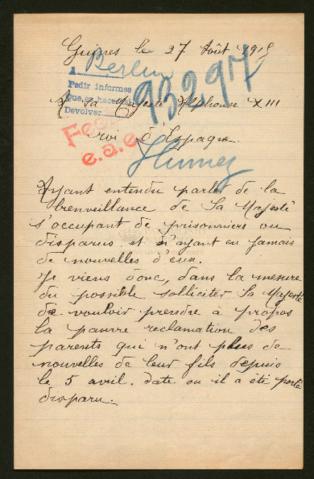 Guines le 27 Août 1918
A Berlin
Pedir informes
que, en hacerlo
Devolver
93297
A Sa Majesté Alphonse XIII
Roi d'Espagne
e.a.e.
Ayant entendu parler de la
bienveillance de Sa Majesté
s'occupant de prisonniers ou
disparus et n'ayant eu jamais
de nouvelles d'eux.
Je viens donc, dans la mesure
du possible solliciter Sa Majesté
de vouloir prendre à propos
la pauvre reclamation des
parents qui n'ont plus de
nouvelles de leur fils depuis
le 5 avril. date ou il a été porté
disparu.